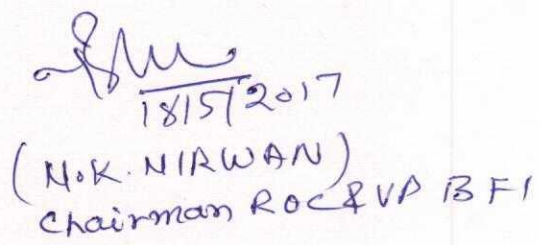 18/5/2017
(N.K. NIRWAN)
Chairman ROC & VP BFI